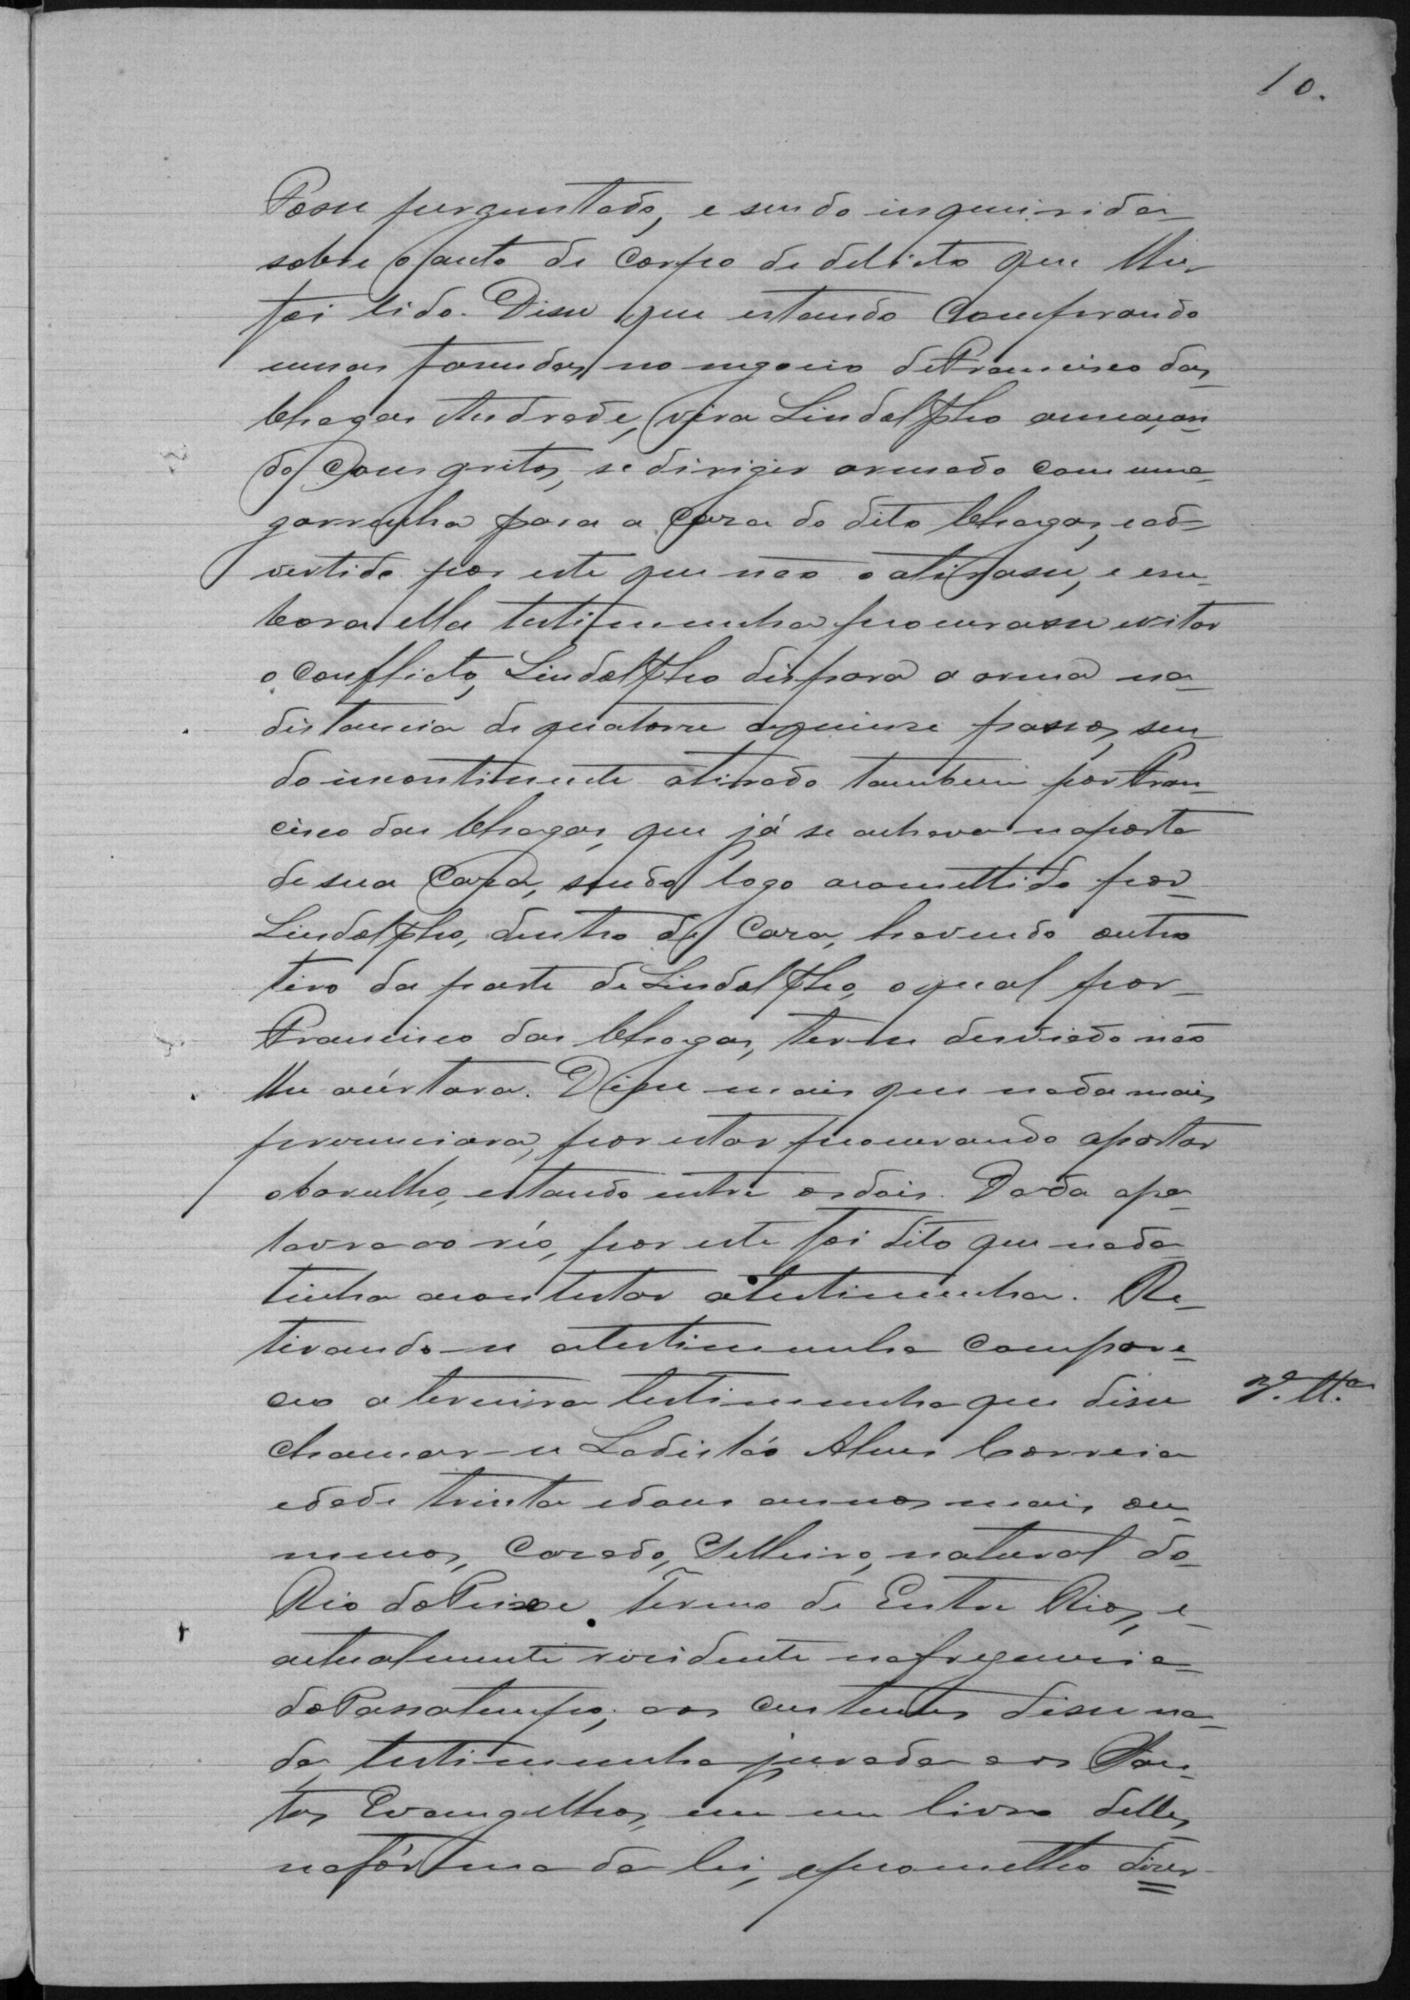 10.
Fosse perguntado, e sendo inquirida
sobre o auto de corpo de delicto que lhe
foi lido. Disse que estando comprando
umas fasendas no negocio de Francisco das
Chagas Andrade, vira Lindolpho ameaçan-
do com gritos, se dirigir armado com uma
garrucha para a casa do dito Chagas, e ad-
vertido por este que não o atirasse, e em-
bora ella testimunha procurasse evitar
o conflicto, Lindolpho dispara a arma na
distancia de quatorse a quinse passos, sen-
do incontinente atirado tambem por Fran-
cisco das Chagas, que já se achava na porta
de sua casa, sendo logo acomettido por
Lindolpho, dentro de casa, havendo outro
tiro da parte de Lindolpho, o qual por
Francisco das Chagas, ter-se desviado não
lhe acértara. Disse mais que nada mais
presenciara, por estar procurando apartar
o barulho, estando entre os dois. Dada a pa-
lavra ao réo, por este foi dito que nada
tinha a contestar a testimunha. Re-
tirando-se a testimunha compare-
ceo a terceira testimunha que disse
3ª. Ttª.
chamar-se Ladisláo Alves Correia
edade trinta e dous annos mais ou
menos, casado, Selleiro, natural do
Rio do Peixe Termo de Entre Rios, e
actualmente residente na freguesia
do Passatempo; aos custumes disse na-
da, testimunha jurada aos San-
tos Evangelhos, em um livro delles,
na fórma da lei, e prometteo diser